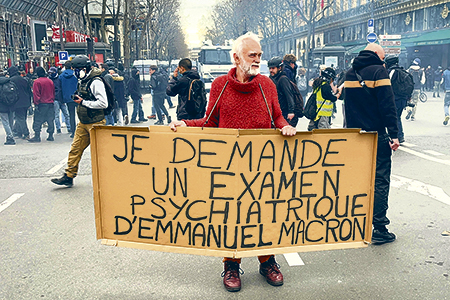 JE DEMANDE
UN EXAMEN
PSYCHIATRIQUE
D'EMMANUEL MACRON